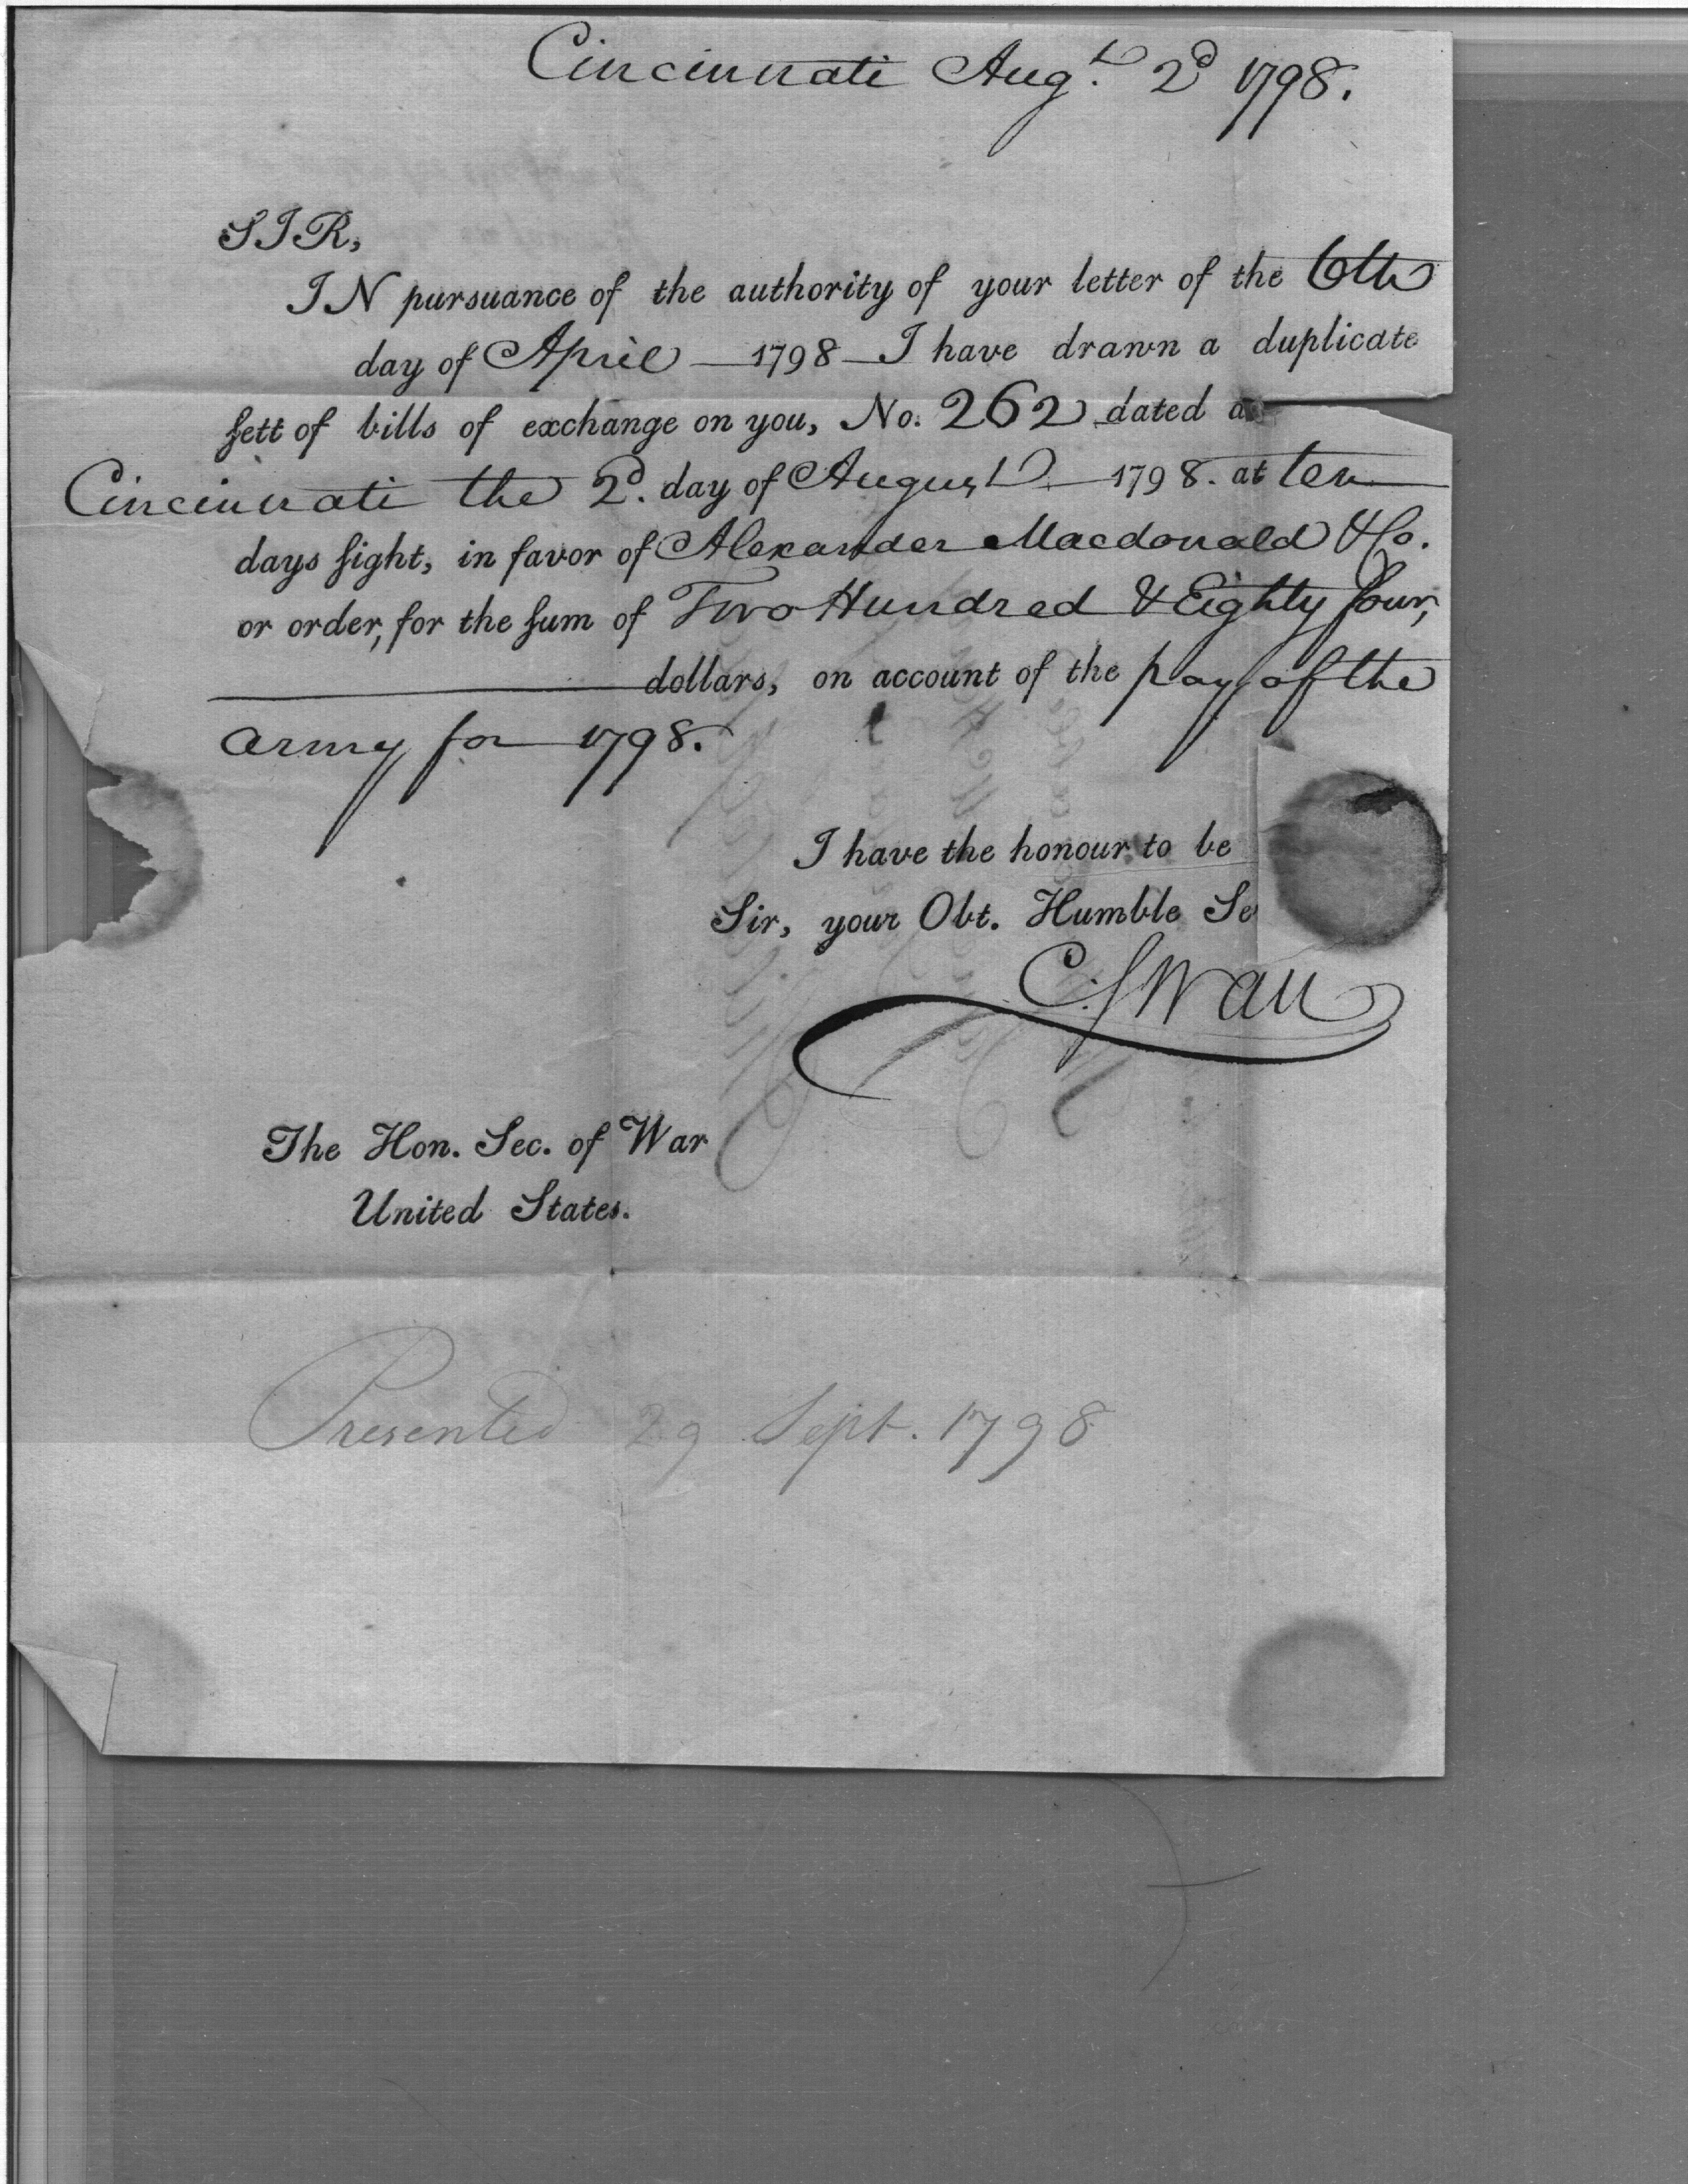 Cincinnati Augt. 2d 1798.
SIR,
IN pursuance of the authority of your letter of the 6th
day of April — 1798 — I have drawn a duplicate
sett of bills of exchange on you, No. 262 dated a
Cincinnati the 2d. day of August — 1798. at ten
days sight, in favor of Alexander Macdonald & Co.
or order, for the sum of Two Hundred & Eighty four,
dollars, on account of the pay of the
army for 1798.
I have the honour to be
Sir, your Obt. Humble Se
C. Swan
The Hon. Sec. of War
United States.
Presented 29 Sept. 1798